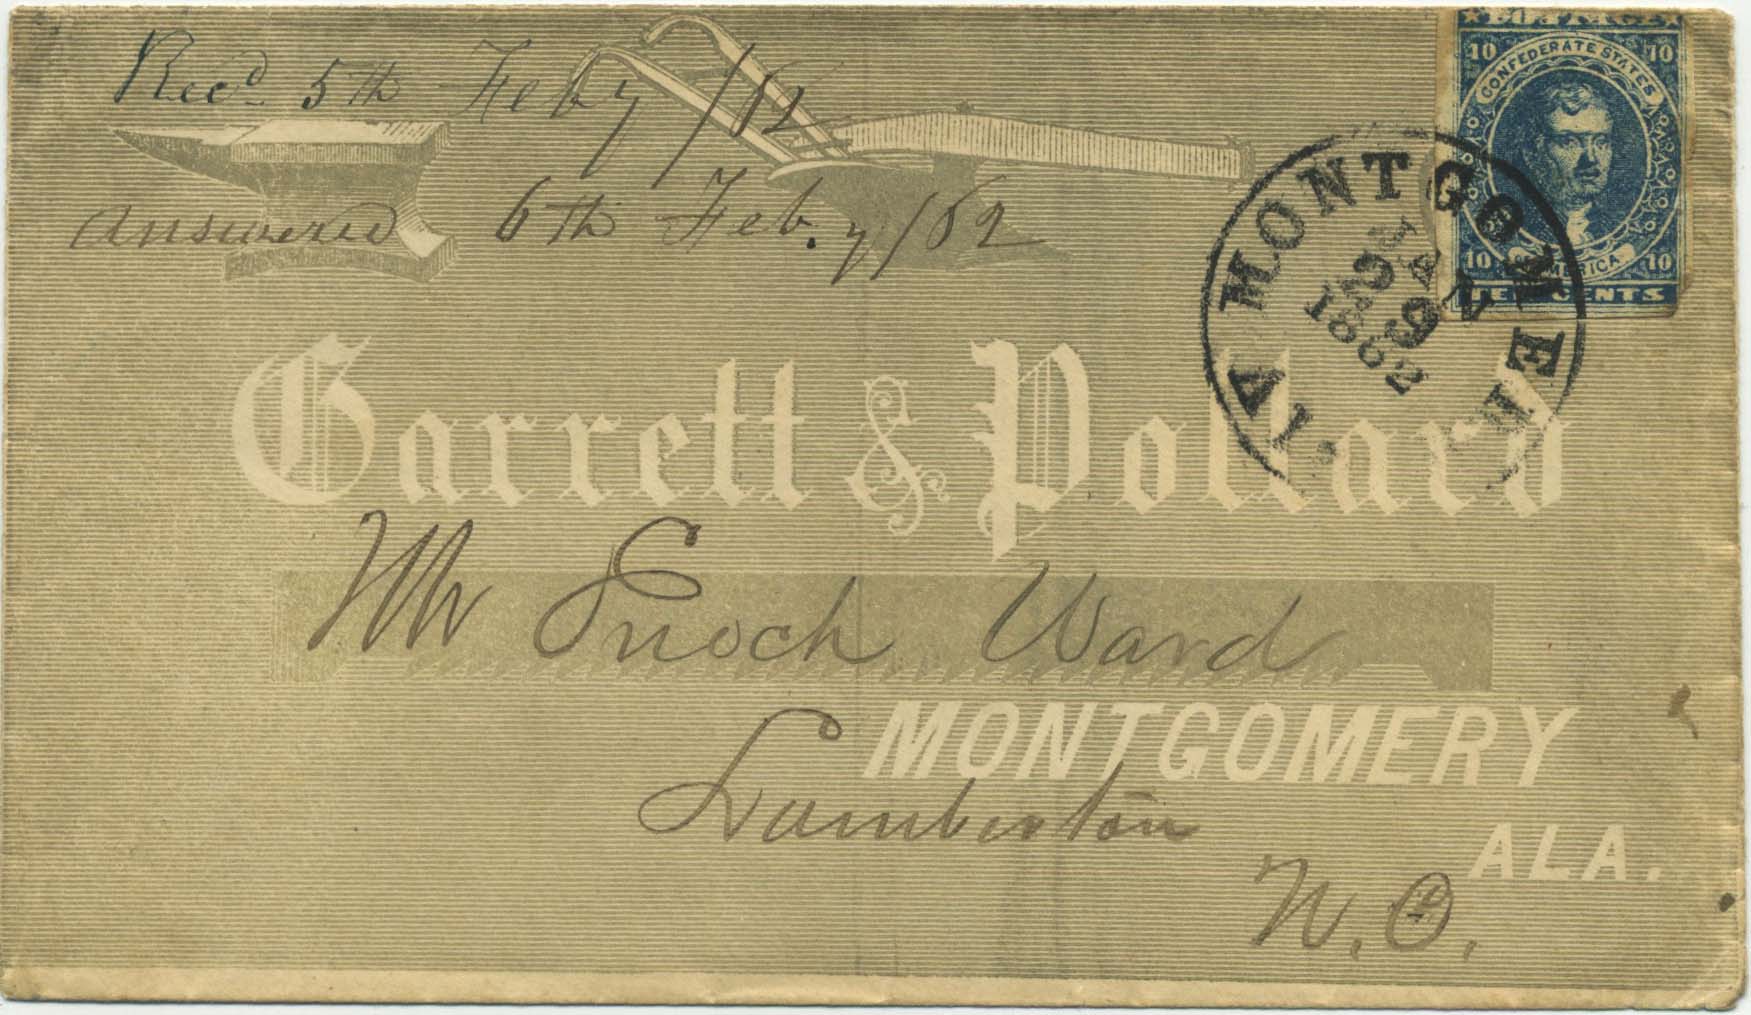 Recd 5th Feby /62
answered 6th Feb.y /62
POSTAGE
10 10
CONFEDERATE STATES
OF AMERICA
10 10
TEN CENTS
MONTGOMERY
ALA
1862
Garrett & Pollard
Mr Enoch Ward
MONTGOMERY
Lumberton
ALA.
N. C.